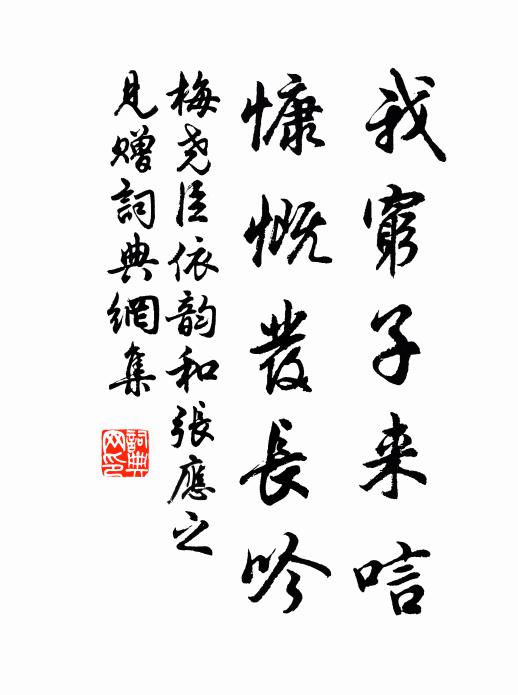 我窮子来唁
慷慨發長吟
梅堯臣依韵和張應之
見贈詞典網集
詞典
网印